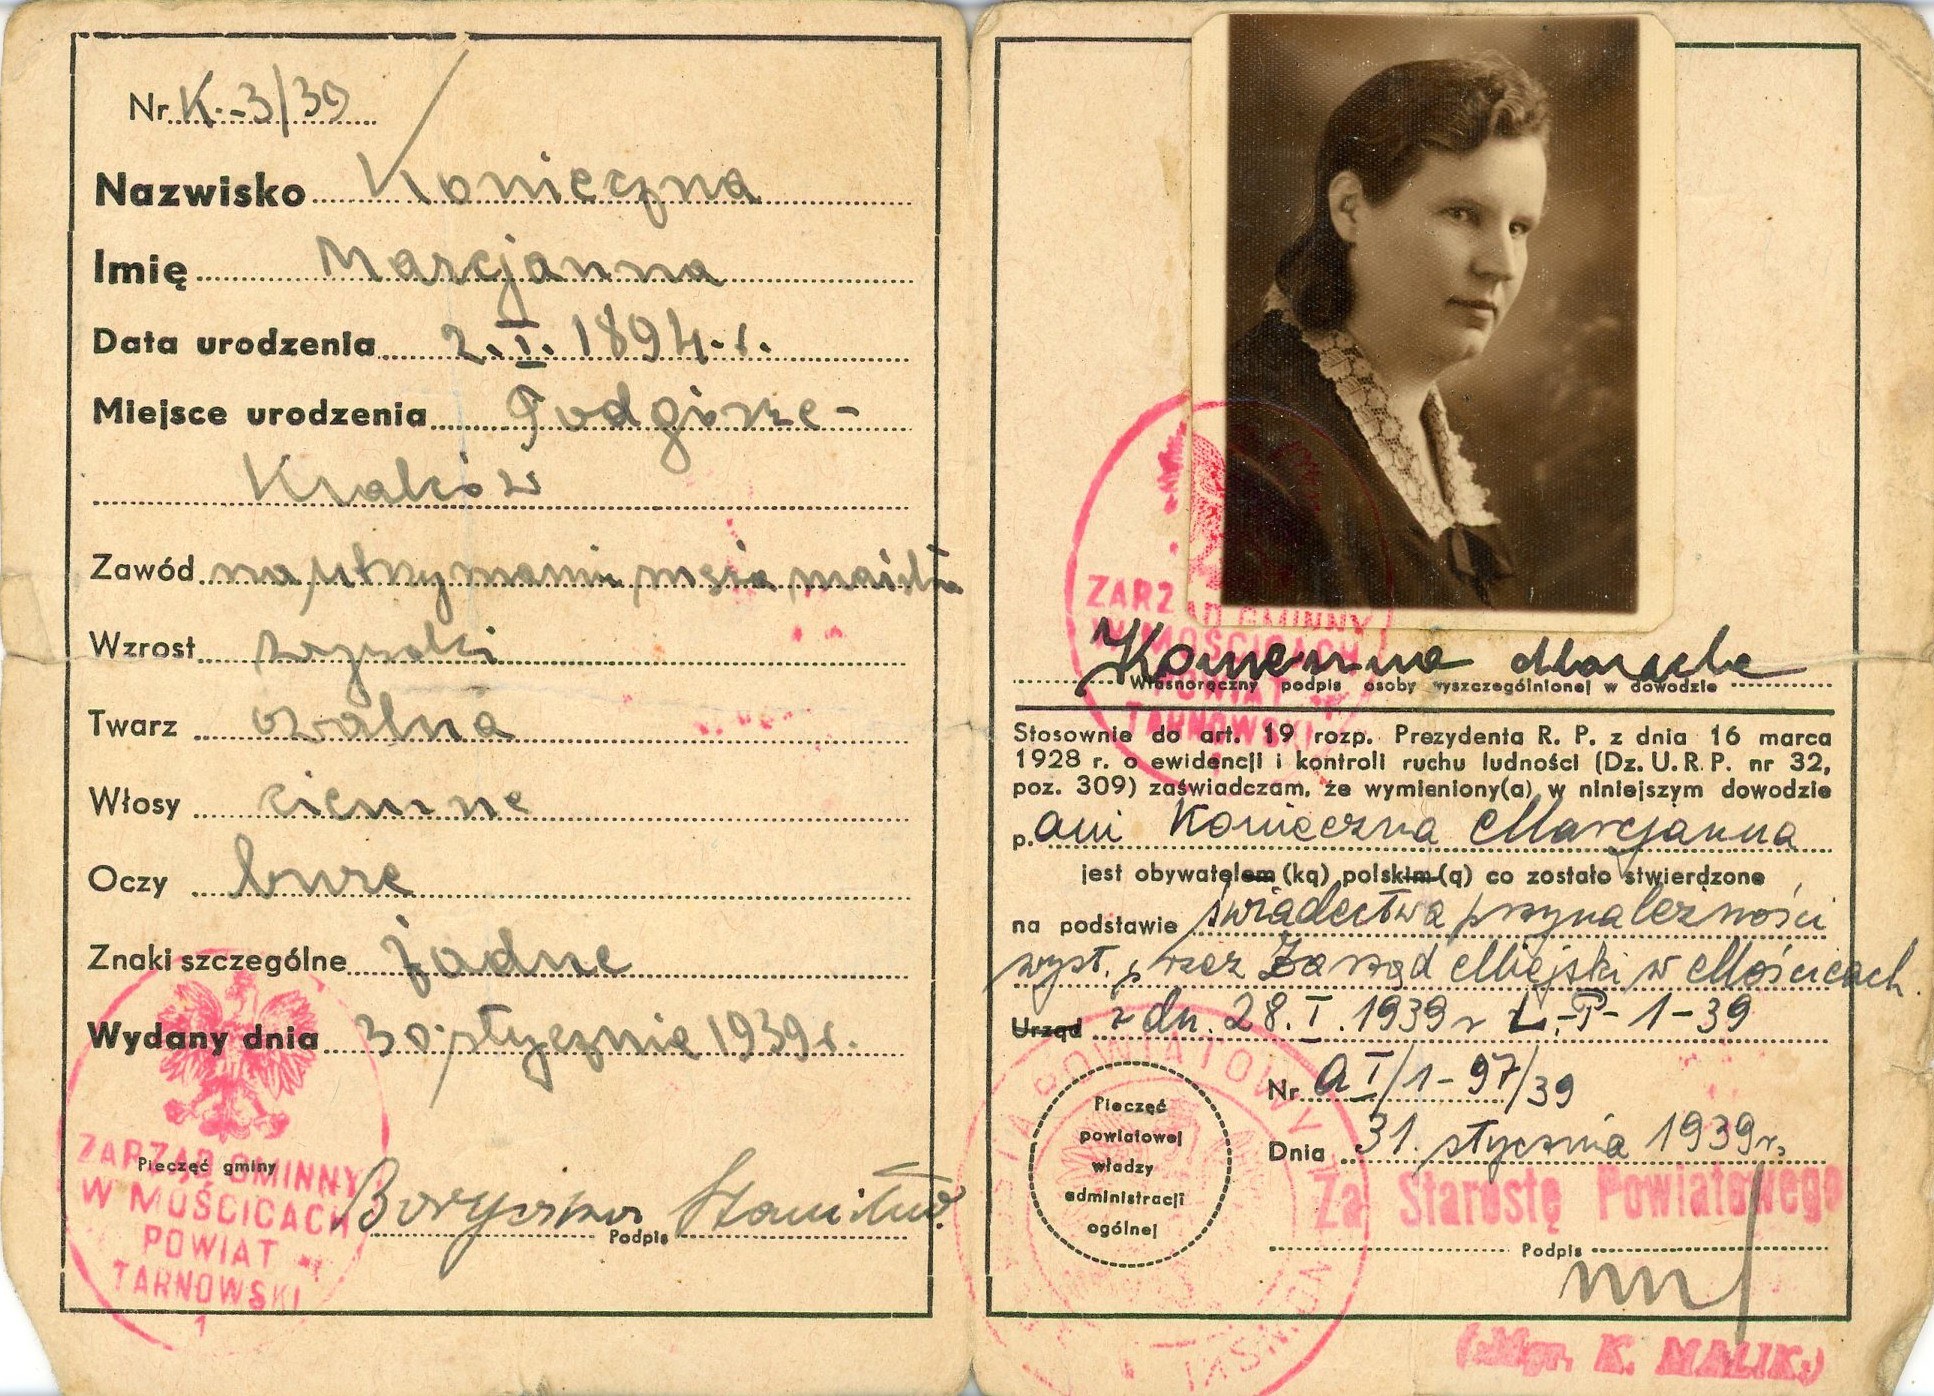 Nr K.-3/39
Nazwisko Konieczna
Imię Marcjanna
Data urodzenia 2.I.1894.r.
Miejsce urodzenia Podgórze-
Kraków
Zawód na utrzymaniu męża
Wzrost wysoki
Twarz owalna
Włosy ciemne
Oczy bure
Znaki szczególne żadne
Wydany dnia 30 stycznia 1939r.
ZARZĄD GMINNY
W MOŚCICACH
POWIAT
TARNOWSKI
1
Pieczęć gminy
Podpis
ZARZĄD GMINNY
W MOŚCICACH
POWIAT
TARNOWSKI
Konieczna
Własnoręczny podpis osoby wyszczególnionej w dowodzie
Stosownie do art. 19 rozp. Prezydenta R. P. z dnia 16 marca
1928 r. o ewidencji i kontroli ruchu ludności (Dz. U. R. P. nr 32,
poz. 309) zaświadczam, że wymieniony(a) w niniejszym dowodzie
p. ani Konieczna Marcjanna
jest obywatelem (ką) polskim (ą) co zostało stwierdzone
na podstawie świadectwa przynależności
wyst. przez Zarząd Miejski w Mościcach.
Urząd z dn. 28.I.1939 r L.-P-1-39
Nr aI/1-97/39
Dnia 31. stycznia 1939r.
Pieczęć
powiatowej
władzy
administracji
ogólnej
Za Starostę Powiatowego
Podpis
(Mgr. K. MALIK)